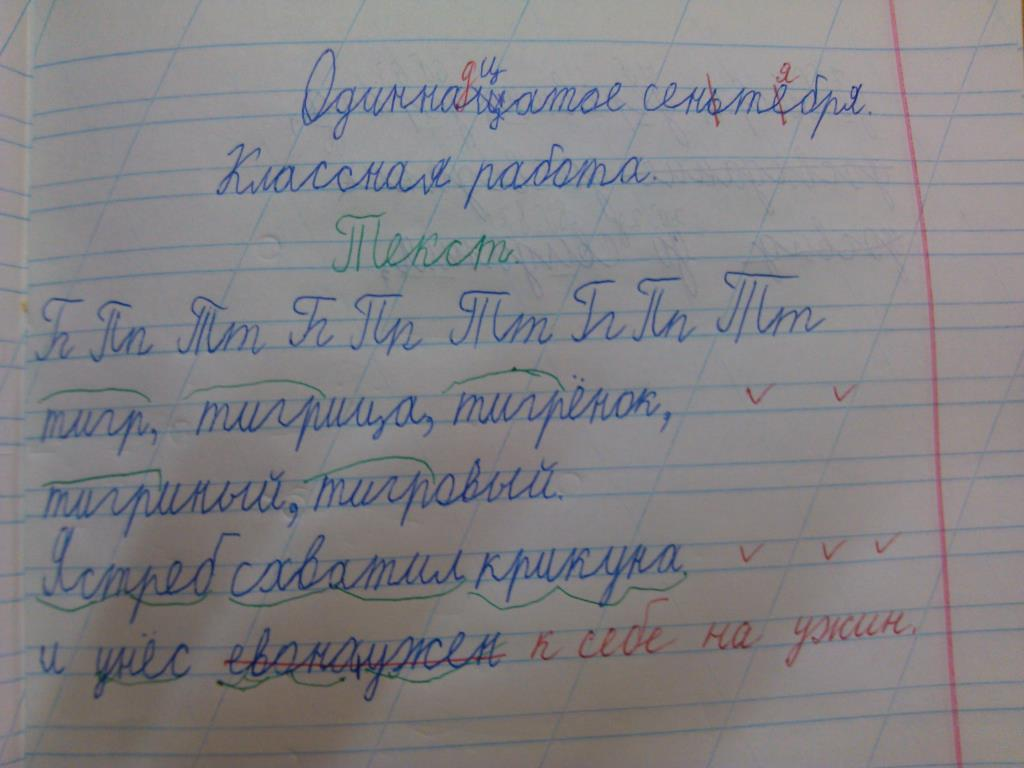 Одиннадцатое сентября.
Классная работа.
Текст
Б Пп Тт Б Пп Тт Бг Пп Тт
тигр, тигрица, тигрёнок,
тигриный, тигровый.
Ястреб схватил крикуна
и унёс евонаужен к себе на ужин.